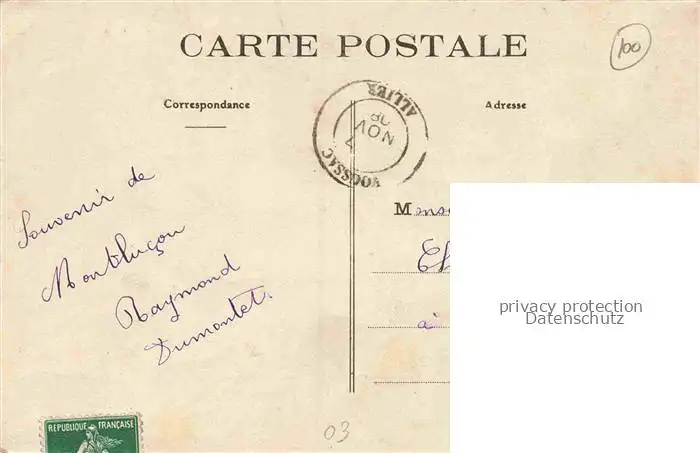 CARTE POSTALE
100
Correspondance
Adresse
VOUSSAC
ALLIER
7
NOV
08
Souvenir de
Montluçon
Raymond
Dumontet.
Mons
à
privacy protection
Datenschutz
REPUBLIQUE FRANÇAISE
03